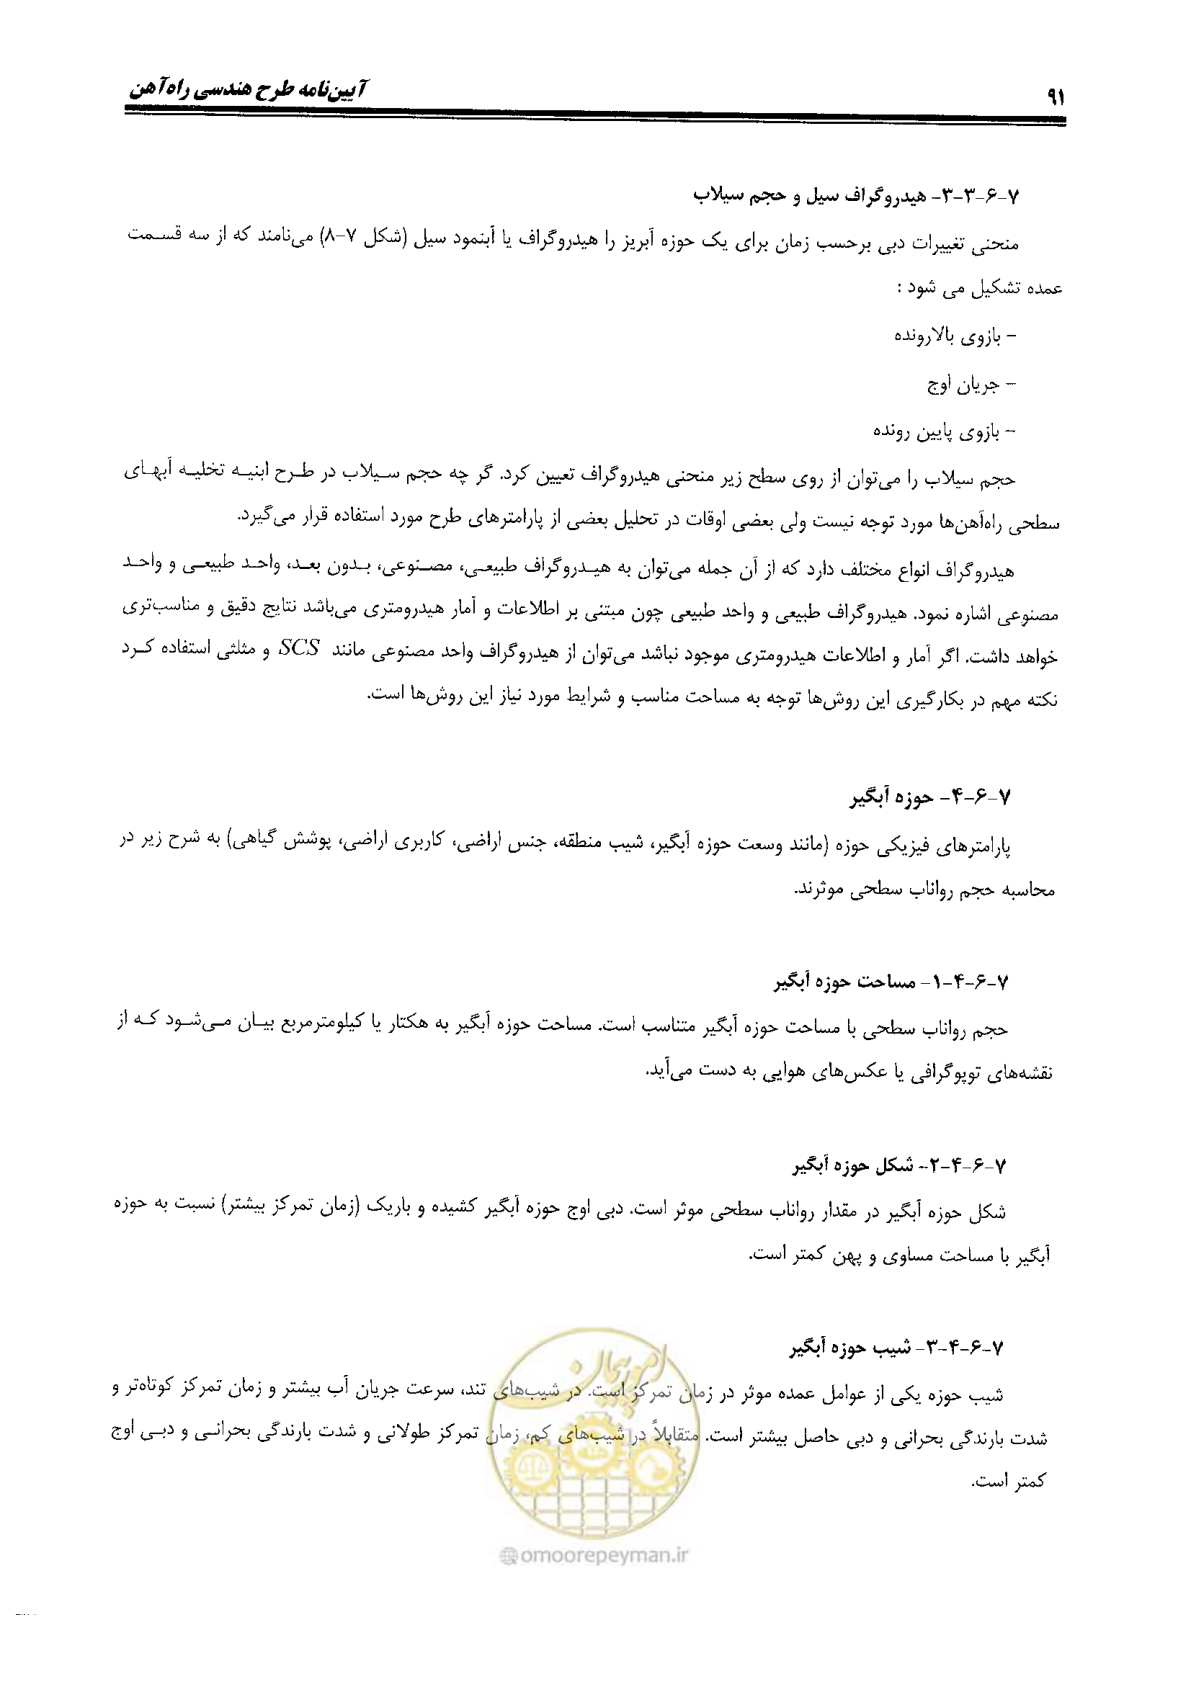 ۹۱
آیین‌نامه طرح هندسی راه‌آهن
۷-۶-۳-۳- هیدروگراف سیل و حجم سیلاب
منحنی تغییرات دبی برحسب زمان برای یک حوزه آبریز را هیدروگراف یا آبنمود سیل (شکل ۷-۸) می‌نامند که از سه قسمت
عمده تشکیل می شود :
- بازوی بالارونده
- جریان اوج
- بازوی پایین رونده
حجم سیلاب را می‌توان از روی سطح زیر منحنی هیدروگراف تعیین کرد. گر چه حجم سیلاب در طرح ابنیه تخلیه آبهای
سطحی راه‌آهن‌ها مورد توجه نیست ولی بعضی اوقات در تحلیل بعضی از پارامترهای طرح مورد استفاده قرار می‌گیرد.
هیدروگراف انواع مختلف دارد که از آن جمله می‌توان به هیدروگراف طبیعی، مصنوعی، بدون بعد، واحد طبیعی و واحد
مصنوعی اشاره نمود. هیدروگراف طبیعی و واحد طبیعی چون مبتنی بر اطلاعات و آمار هیدرومتری می‌باشد نتایج دقیق و مناسب‌تری
خواهد داشت. اگر آمار و اطلاعات هیدرومتری موجود نباشد می‌توان از هیدروگراف واحد مصنوعی مانند SCS و مثلثی استفاده کرد
نکته مهم در بکارگیری این روش‌ها توجه به مساحت مناسب و شرایط مورد نیاز این روش‌ها است.
۷-۶-۴- حوزه آبگیر
پارامترهای فیزیکی حوزه (مانند وسعت حوزه آبگیر، شیب منطقه، جنس اراضی، کاربری اراضی، پوشش گیاهی) به شرح زیر در
محاسبه حجم رواناب سطحی موثرند.
۷-۶-۴-۱- مساحت حوزه آبگیر
حجم رواناب سطحی با مساحت حوزه آبگیر متناسب است. مساحت حوزه آبگیر به هکتار یا کیلومترمربع بیان می‌شود که از
نقشه‌های توپوگرافی یا عکس‌های هوایی به دست می‌آید.
۷-۶-۴-۲- شکل حوزه آبگیر
شکل حوزه آبگیر در مقدار رواناب سطحی موثر است. دبی اوج حوزه آبگیر کشیده و باریک (زمان تمرکز بیشتر) نسبت به حوزه
آبگیر با مساحت مساوی و پهن کمتر است.
۷-۶-۴-۳- شیب حوزه آبگیر
شیب حوزه یکی از عوامل عمده موثر در زمان تمرکز است. در شیب‌های تند، سرعت جریان آب بیشتر و زمان تمرکز کوتاه‌تر و
شدت بارندگی بحرانی و دبی حاصل بیشتر است. متقابلاً در شیب‌های کم، زمان تمرکز طولانی و شدت بارندگی بحرانی و دبی اوج
کمتر است.
امور پیمان
omoorepeyman.ir